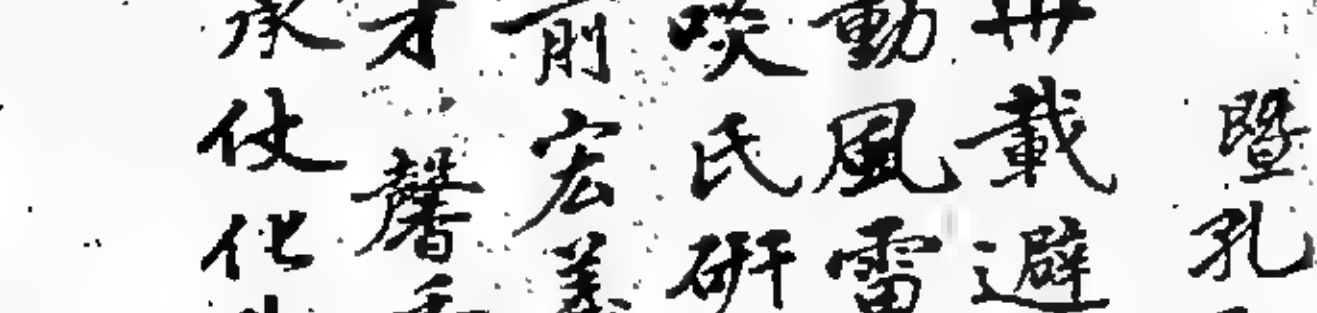 暨孔
冊載避
動風雷
啖氏研
前宏義
才馨香
承仗化